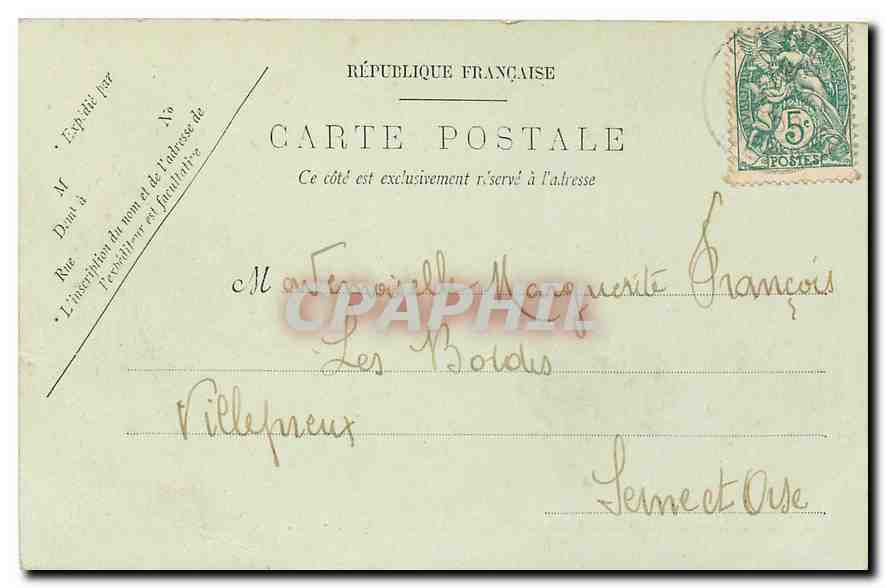 RÉPUBLIQUE FRANÇAISE
CARTE POSTALE
Ce côté est exclusivement réservé à l'adresse
* Expédié par
M
Demt à
Rue No
* L'inscription du nom et de l'adresse de
l'expéditeur est facultative
5c
POSTES
Mademoiselle Marguerite François
CPAPHIL
Les Bordes
Villepreux
Seine et Oise